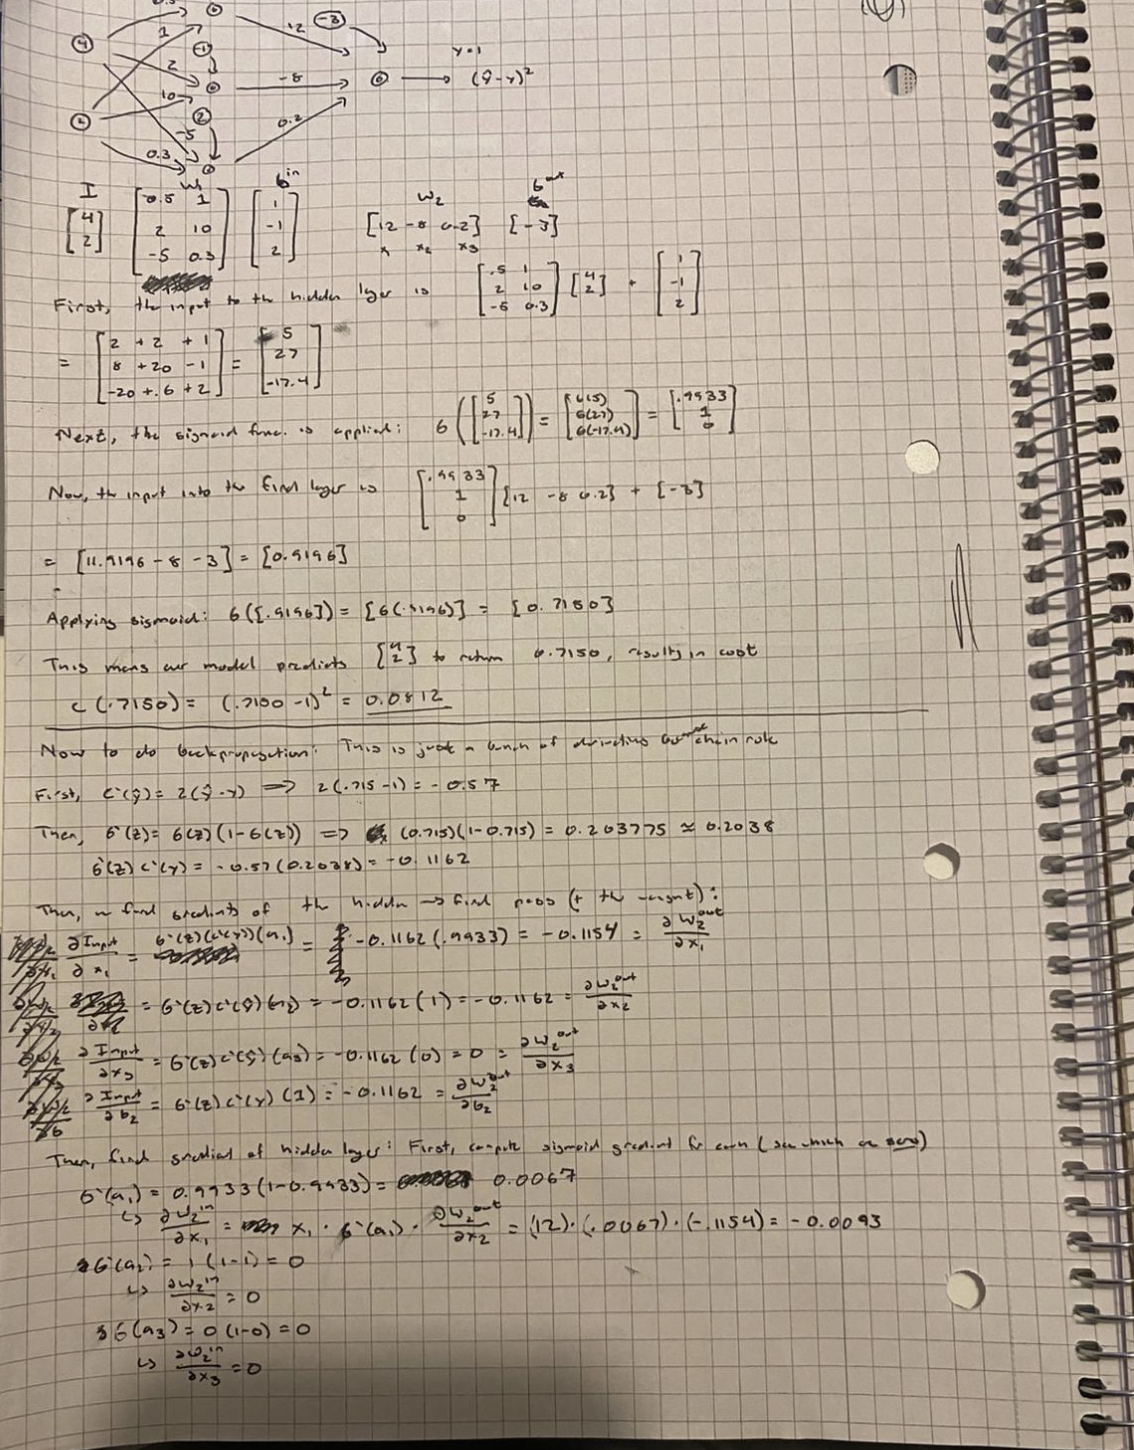 0.5
1
4
-1
2
10
2
2
-5
0.3
12
-3
-8
0.2
y=1
(ŷ-y)²
I W₁ b^in W₂ b^out
[4 2] [0.5 1 2 10 -5 0.3] [1 -1 2] [12 -8 0.2] [-3]
x₁ x₂ x₃
First, the input to the hidden layer is [.5 1 2 10 -5 0.3] [4 2] + [1 -1 2]
= [2 +2 +1 8 +20 -1 -20 +.6 +2] = [5 27 -17.4]
Next, the sigmoid func. is applied: σ([5 27 -17.4]) = [σ(5) σ(27) σ(-17.4)] = [.9933 1 0]
Now, the input into the final layer is [.9933 1 0] [12 -8 0.2] + [-3]
= [11.9196 - 8 - 3] = [0.9196]
Applying sigmoid: σ([.9196]) = [σ(.9196)] = [0.7150]
This means our model predicts [4 2] to return 0.7150, results in cost
C(.7150) = (.7150 -1)² = 0.0812
Now to do backpropagation: This is just a bunch of chain rule
First, C'(ŷ) = 2(ŷ-y) => 2(.715-1) = -0.57
Then, σ'(z) = σ(z)(1-σ(z)) => (0.715)(1-0.715) = 0.203775 ≈ 0.2038
σ'(z) C'(y) = -0.57(0.2038) = -0.1162
Then, we find gradients of the hidden → final pass (+ the weight):
∂Input/∂x₁ = σ'(z)(C'(y))(a₁) = -0.1162(.9933) = -0.1154 = ∂W₂^out/∂x₁
= σ'(z)C'(ŷ)(a₂) = -0.1162(1) = -0.1162 = ∂W₂^out/∂x₂
∂Input/∂x₃ = σ'(z)C'(ŷ)(a₃) = -0.1162(0) = 0 = ∂W₂^out/∂x₃
∂Input/∂b₂ = σ'(z)C'(y)(1) = -0.1162 = ∂W₂^out/∂b₂
Then, find gradient of hidden layer: First, compute sigmoid gradient for each (see which are zero)
σ'(a₁) = 0.9933(1-0.9933) = 0.0067
↳ ∂W₂^in/∂x₁ = x₁ · σ'(a₁) · ∂W₂^out/∂x₂ = (12)·(.0067)·(-.1154) = -0.0093
σ'(a₂) = 1(1-1) = 0
↳ ∂W₂^in/∂x₂ = 0
σ'(a₃) = 0(1-0) = 0
↳ ∂W₂^in/∂x₃ = 0